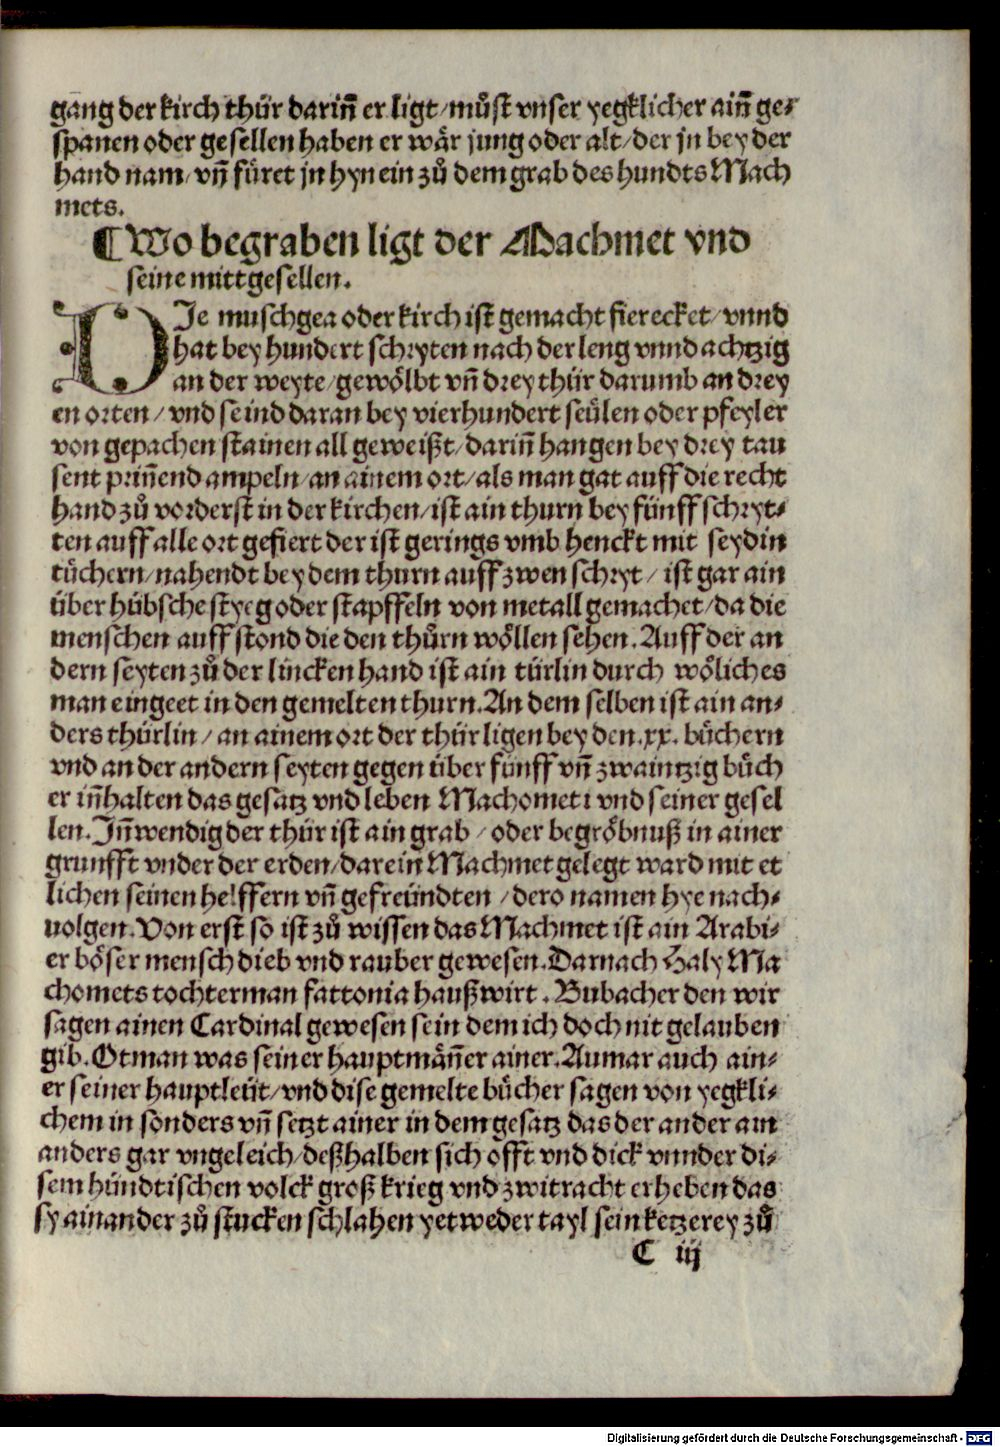 gang der kirch thür dariñ er ligt/můſt vnſer yegklicher aiñ ge⸗
ſpanen oder geſellen haben er wår jung oder alt/der jn bey der
hand nam/vñ füret jn hyn ein zů dem grab des hundts Mach
mets.
¶Wo begraben ligt der Machmet vnd
ſeine mittgeſellen.
DIe muſchgea oder kirch iſt gemacht fierecket/vnnd
hat bey hundert ſchryten nach der leng vnnd achtzig
an der weyte/gewölbt vñ drey thür darumb an drey
en orten/vnd ſeind daran bey vierhundert ſeülen oder pfeyler
von gepachen ſtainen all geweißt/dariñ hangen bey drey tau
ſent priñend ampeln/an ainem ort/als man gat auff die recht
hand zů vorderſt in der kirchen/iſt ain thurn bey fünff ſchryt⸗
ten auff alle ort gefiert der iſt gerings vmb henckt mit ſeydin
tüchern/nahendt bey dem thurn auff zwen ſchryt/ iſt gar ain
über hübſche ſtyeg oder ſtapffeln von metall gemachet/da die
menſchen auff ſtond die den thůrn wöllen ſehen.Auff der an
dern ſeyten zů der lincken hand iſt ain türlin durch wöliches
man eingeet in den gemelten thurn.An dem ſelben iſt ain an⸗
ders thürlin/an ainem ort der thür ligen bey den.xx. büchern
vnd an der andern ſeyten gegen über fünff vñ zwaintzig büch
er iñhalten das geſatz vnd leben Machometi vnd ſeiner geſel
len.Jñwendig der thür iſt ain grab/oder begröbnuß in ainer
grunfft vnder der erden/darein Machmet gelegt ward mit et
lichen ſeinen helffern vñ gefreündten/dero namen hye nach⸗
uolgen.Von erſt ſo iſt zů wiſſen das Machmet iſt ain Arabi⸗
er böſer menſch dieb vnd rauber geweſen.Darnach Haly Ma
chomets tochterman fattonia haußwirt.Bubacher den wir
ſagen ainen Cardinal geweſen ſein dem ich doch nit gelauben
gib.Otman was ſeiner hauptmäñer ainer.Aumar auch ain⸗
er ſeiner hauptleüt/vnd diſe gemelte bücher ſagen von yegkli⸗
chem in ſonders vñ ſetzt ainer in dem geſatz das der ander ain
anders gar vngeleich/deßhalben ſich offt vnd dick vnnder di⸗
ſem hündtiſchen volck groß krieg vnd zwitracht erheben das
ſy ainander zů ſtucken ſchlahen yetweder tayl ſein ketzerey zů
C iij
Digitalisierung gefördert durch die Deutsche Forschungsgemeinschaft - DFG